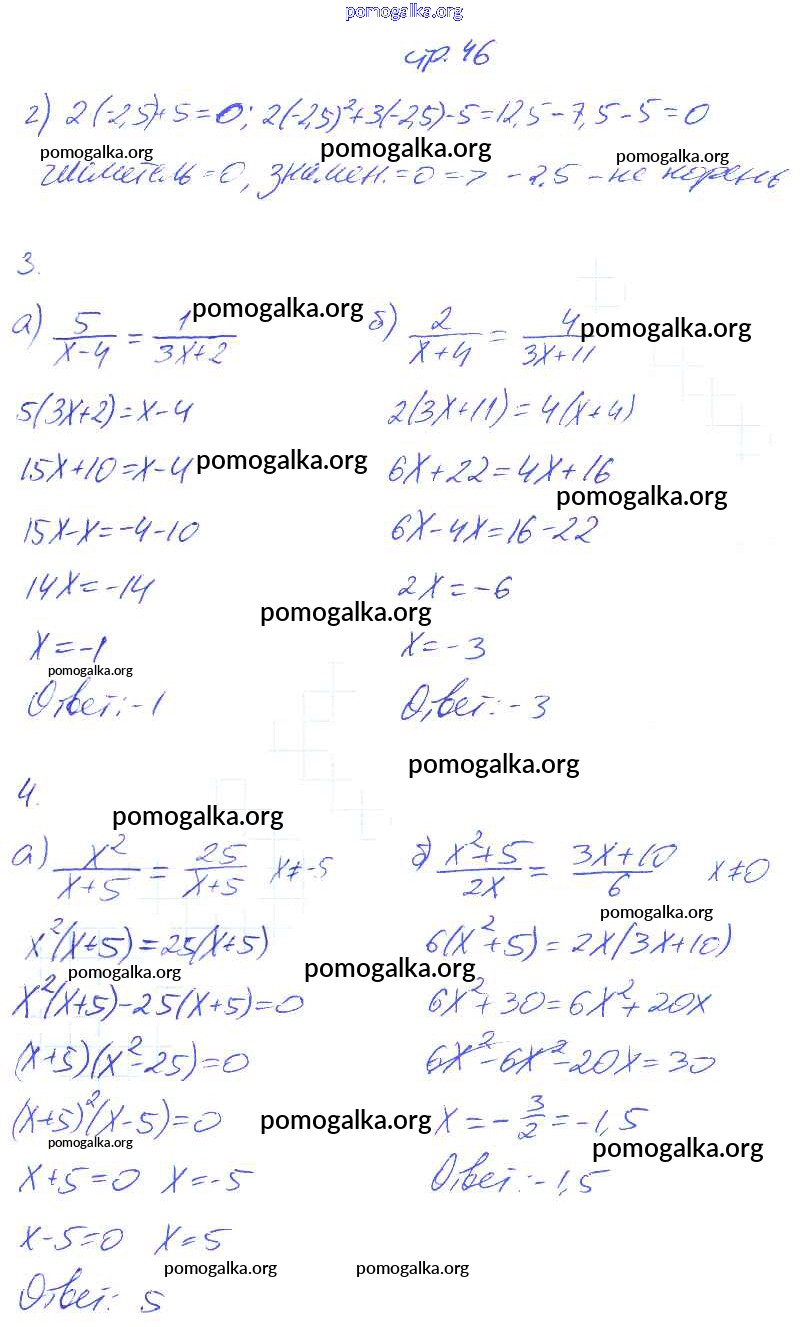 pomogalka.org
стр. 46
г) 2(-2,5)+5=0; 2(-2,5)²+3(-2,5)-5=12,5-7,5-5=0
pomogalka.org pomogalka.org pomogalka.org
числитель=0, знамен.=0=> -2.5 - не корень
3.
а) 5/(x-4) = 1/(3x+2) pomogalka.org б) 2/(x+4) = 4/(3x+11) pomogalka.org
5(3x+2)=x-4 2(3x+11)=4(x+4)
15x+10=x-4 pomogalka.org 6x+22=4x+16
pomogalka.org
15x-x=-4-10 6x-4x=16-22
14x=-14 2x=-6
pomogalka.org
x=-1 x=-3
pomogalka.org
Ответ:-1 Ответ:-3
pomogalka.org
4.
pomogalka.org
а) x²/(x+5) = 25/(x+5) x≠-5 б) (x²+5)/2x = (3x+10)/6 x≠0
pomogalka.org
x²(x+5)=25(x+5) 6(x²+5)=2x(3x+10)
pomogalka.org pomogalka.org
x²(x+5)-25(x+5)=0 6x²+30=6x²+20x
(x+5)(x²-25)=0 6x²-6x²-20x=30
(x+5)²(x-5)=0 pomogalka.org x=-3/2=-1,5
pomogalka.org pomogalka.org
x+5=0 x=-5 Ответ:-1,5
x-5=0 x=5
pomogalka.org pomogalka.org
Ответ: 5